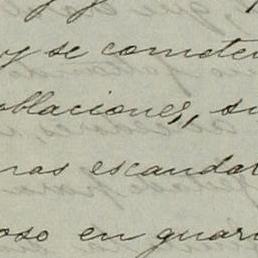 y se cometen
oblaciones, su
nas escandal
oso en guar